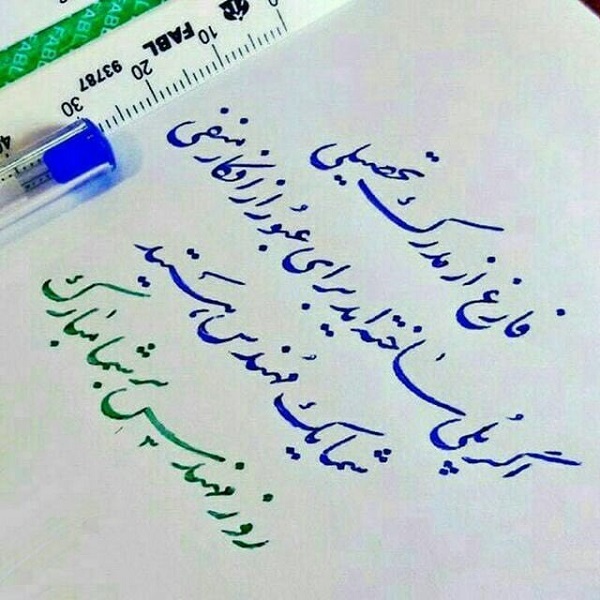 فارغ از مدرک تحصیلی
اگر پلی ساخته اید برای عبور از افکار منفی
شما یک مهندس هستید
روز مهندس بر شما مبارک
FABL
93787
0 10 20 30 40
FABL